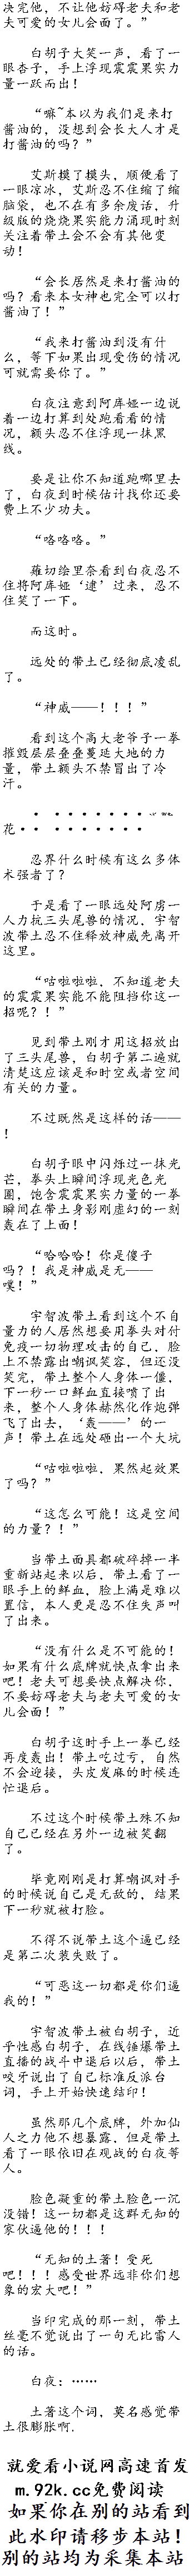 决完他，不让他妨碍老夫和老
夫可爱的女儿会面了。”
白胡子大笑一声，看了一
眼杏子，手上浮现震震果实力
量一跃而出！
“嘛~本以为我们是来打
酱油的，没想到会长大人才是
打酱油的吗？”
艾斯摸了摸头，顺便看了
一眼凉冰，艾斯忍不住缩了缩
脑袋，也不在有多余废话，升
级版的烧烧果实能力涌现时刻
关注着带土会不会有其他变
动！
“会长居然是来打酱油的
吗？看来本女神也完全可以打
酱油了！”
“我来打酱油到没有什
么，等下如果出现受伤的情况
可就需要你了。”
白夜注意到阿库娅一边说
着一边打算到处跑看看的情
况，额头忍不住浮现一抹黑
线。
要是让你不知道跑哪里去
了，白夜到时候估计找你还要
费上不少功夫。
“咯咯咯。”
薙切绘里奈看到白夜忍不
住将阿库娅‘逮’过来，忍不
住笑了一下。
而这时。
远处的带土已经彻底凌乱
了。
“神威——！！！”
看到这个高大老爷子一拳
摧毁层层叠叠蔓延大地的力
量，带土额头不禁冒出了冷
汗。
花
忍界什么时候有这么多体
术强者了？
于是看了一眼远处阿虏一
人力抗三头尾兽的情况，宇智
波带土忍不住释放神威先离开
这里。
“咕啦啦啦，不知道老夫
的震震果实能不能阻挡你这一
招呢？！”
见到带土刚才用这招放出
了三头尾兽，白胡子第二遍就
清楚这应该是和时空或者空间
有关的力量。
不过既然是这样的话——
！
白胡子眼中闪烁过一抹光
芒，拳头上瞬间浮现光色光
圈，饱含震震果实力量的一拳
瞬间在带土身影刚虚幻的一刻
轰在了上面！
“哈哈哈！你是傻子
吗？！我是神威是无——
噗！”
宇智波带土看到这个不自
量力的人居然想要用拳头对付
免疫一切物理攻击的自己，脸
上不禁露出嘲讽笑容，但还没
笑完，带土整个人身体一僵，
下一秒一口鲜血直接喷了出
来，整个人身体赫然化作炮弹
飞了出去，‘轰——’的一
声！带土在远处砸出一个大坑
“咕啦啦啦，果然起效果
了吗？”
“这怎么可能！这是空间
的力量？！”
当带土面具都破碎掉一半
重新站起来以后，带土看了一
眼手上的鲜血，脸上满是难以
置信，本人更是忍不住失声叫
了出来。
“没有什么是不可能的！
如果有什么底牌就快点拿出来
吧！老夫可想要快点解决你，
不要妨碍老夫与老夫可爱的女
儿会面！”
白胡子这时手上一拳已经
再度轰出！带土吃过亏，自然
不会迎接，头皮发麻的时候连
忙退后。
不过这个时候带土殊不知
自己已经在另外一边被笑翻
了。
毕竟刚刚是打算嘲讽对手
的时候说自己是无敌的，结果
下一秒就被打脸。
不得不说带土这个逼已经
是第二次装失败了。
“可恶这一切都是你们逼
我的！”
宇智波带土被白胡子，近
乎性感白胡子，在线锤爆带土
直播的战斗中退后以后，带土
咬牙说出了自己标准反派台
词，手上开始快速结印！
虽然那几个底牌，外加仙
人之力他不想暴露，但是带土
看了一眼依旧在观战的白夜等
人。
脸色凝重的带土脸色一沉
没错！这一切都是这群无知的
家伙逼他的！！！
“无知的土著！受死
吧！！！感受世界远非你们想
象的宏大吧！”
当印完成的那一刻，带土
丝毫不觉说出了一句无比雷人
的话。
白夜：……
土著这个词，莫名感觉带
土很膨胀啊.
就爱看小说网高速首发
m.92k.cc免费阅读
如果你在别的站看到
此水印请移步本站！
别的站均为采集本站